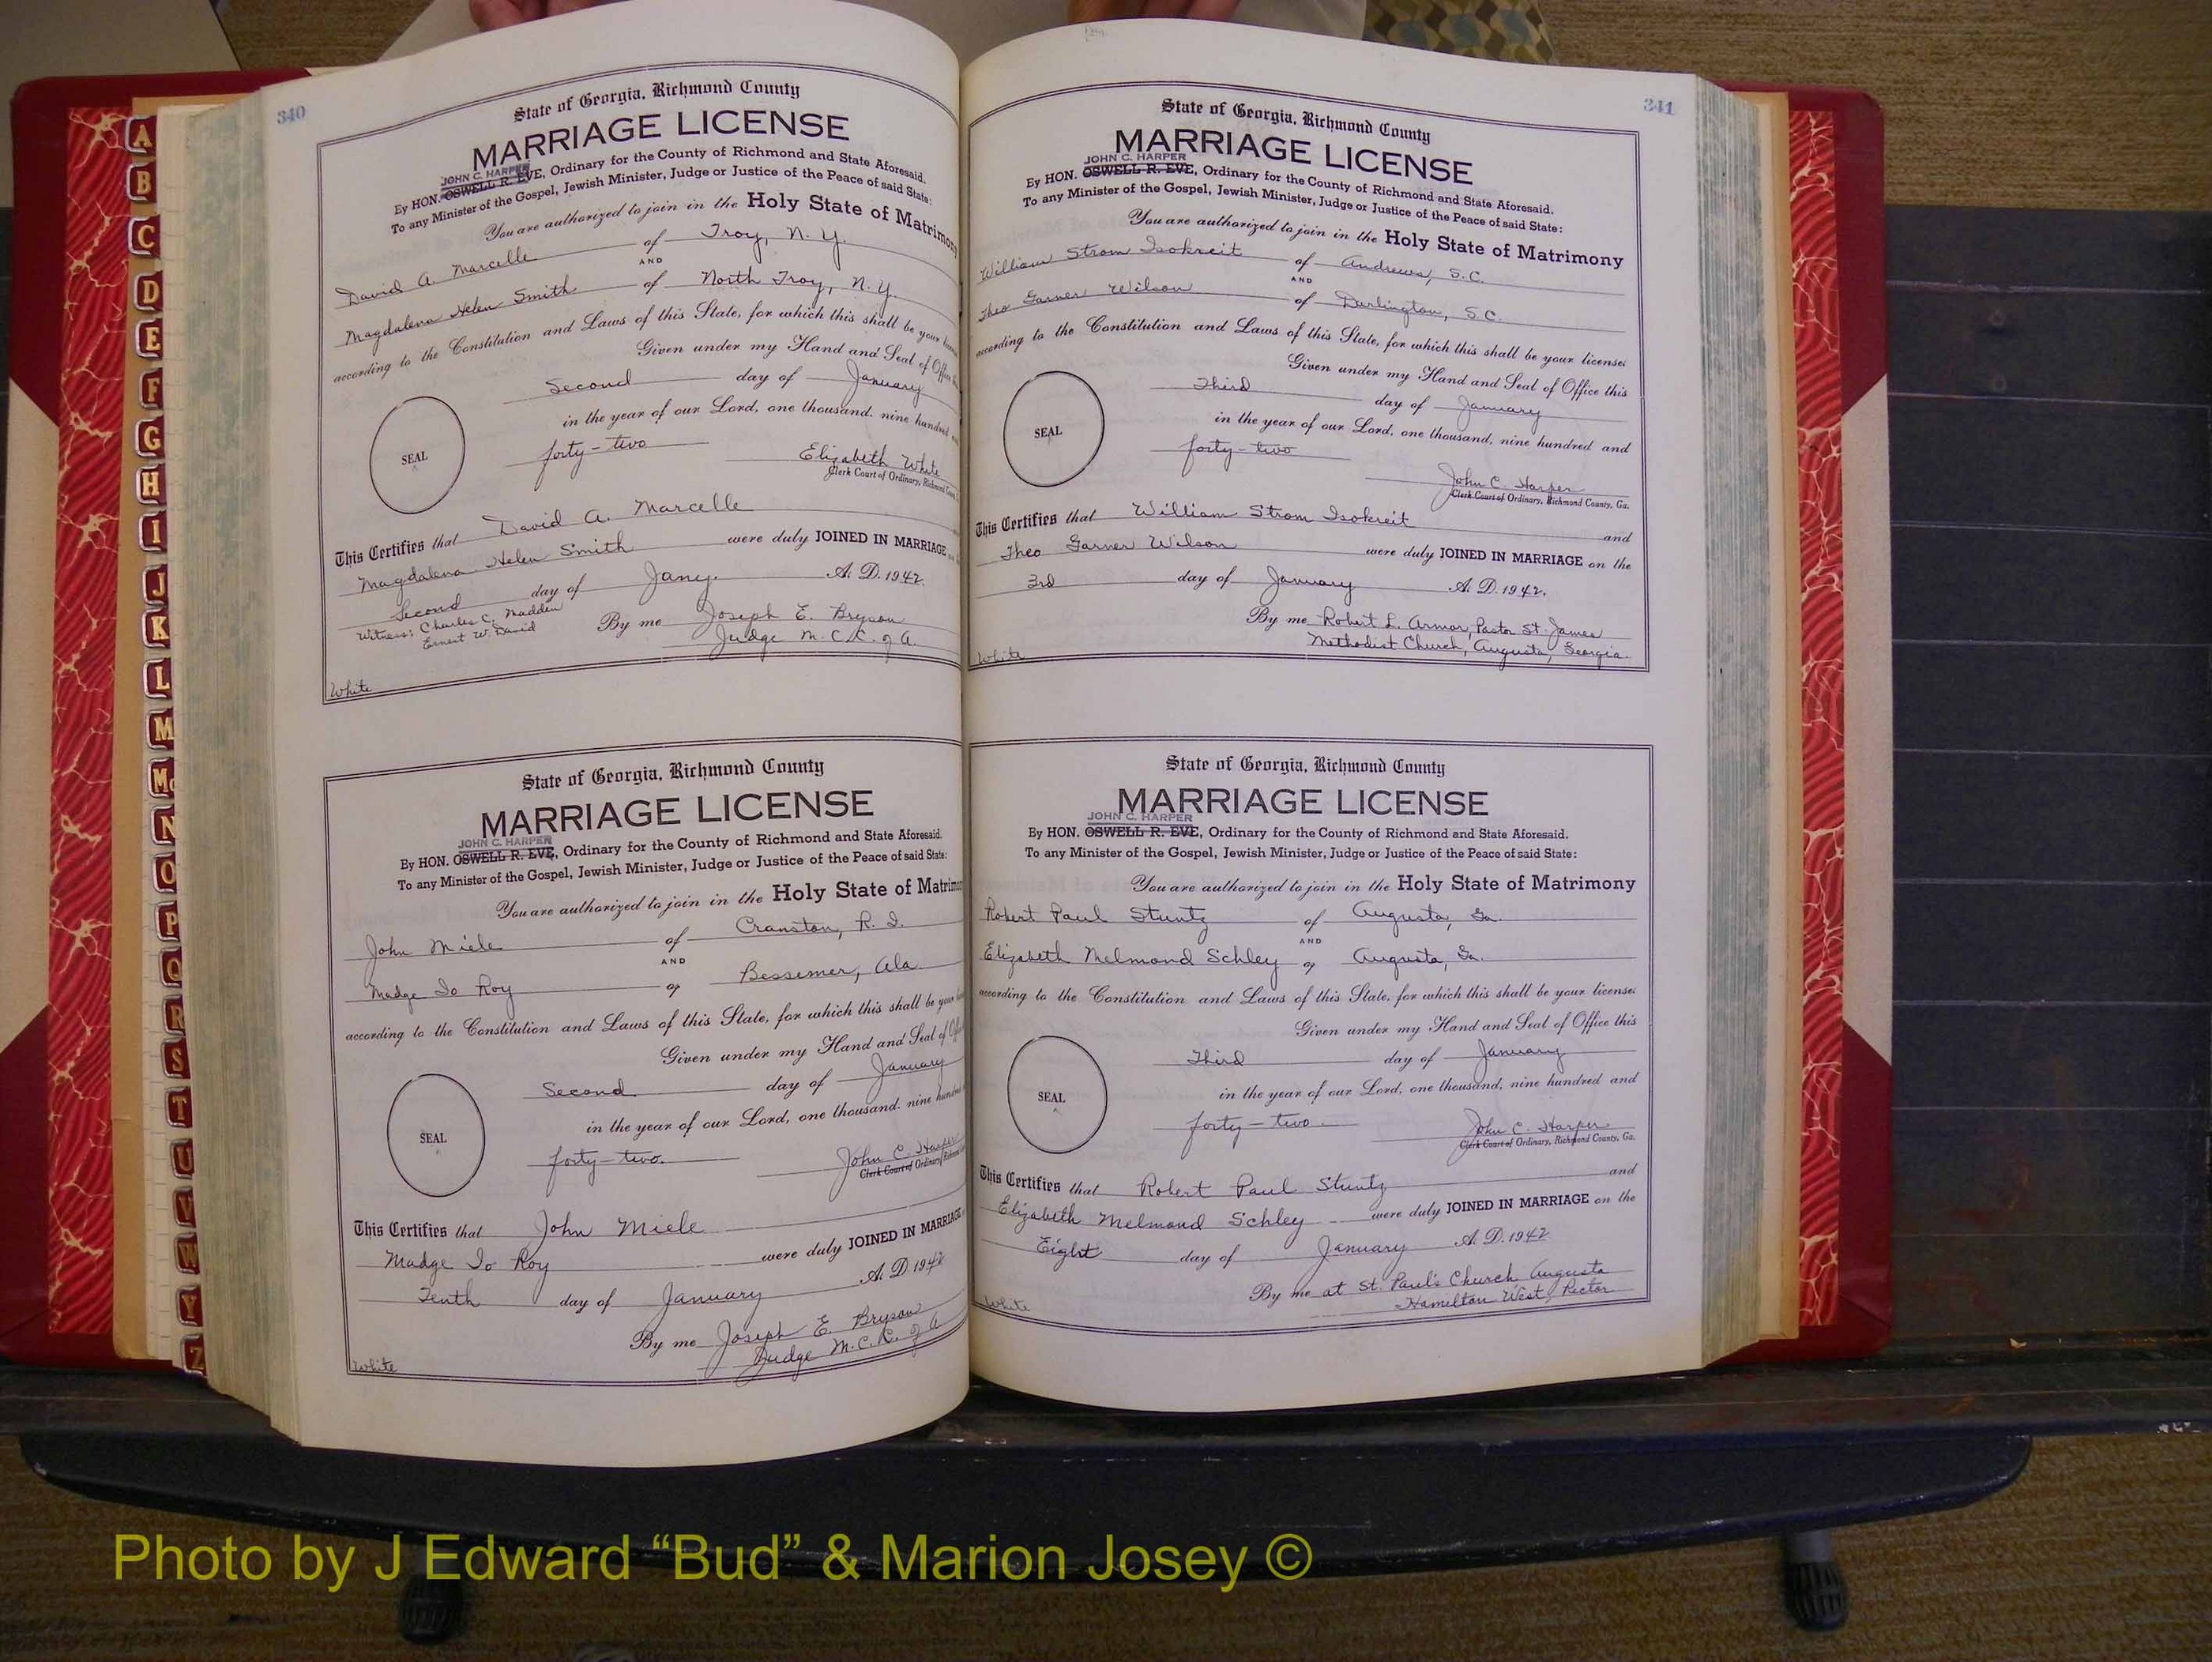 340
State of Georgia, Richmond County
MARRIAGE LICENSE
JOHN C. HARPER
By HON. OSWELL R. EVE, Ordinary for the County of Richmond and State Aforesaid.
To any Minister of the Gospel, Jewish Minister, Judge or Justice of the Peace of said State:
You are authorized to join in the Holy State of Matrimony
David A. Marcelle of Troy, N. Y.
AND
Magdalena Helen Smith of North Troy, N. Y.
according to the Constitution and Laws of this State, for which this shall be your
Given under my Hand and Seal of Office
Second day of January
in the year of our Lord, one thousand, nine hundred
forty-two
SEAL
Elizabeth White
Clerk Court of Ordinary, Richmond
This Certifies that David A. Marcelle
Magdalena Helen Smith were duly JOINED IN MARRIAGE
Second day of Jany. A. D. 1942.
Witness: Charles C. Madden
Ernest W. David
By me Joseph E. Bryson
Judge M. C. C. of A.
White
State of Georgia, Richmond County
MARRIAGE LICENSE
JOHN C. HARPER
By HON. OSWELL R. EVE, Ordinary for the County of Richmond and State Aforesaid.
To any Minister of the Gospel, Jewish Minister, Judge or Justice of the Peace of said State:
You are authorized to join in the Holy State of
John Miele of Cranston, R. I.
AND
Madge Jo Roy of Bessemer, Ala.
according to the Constitution and Laws of this State, for which this shall be your
Given under my Hand and Seal of
Second day of January
in the year of our Lord, one thousand, nine
forty-two.
SEAL
John C. Harper
Clerk Court of Ordinary, Richmond
This Certifies that John Miele
Madge Jo Roy were duly JOINED IN MARRIAGE
Tenth day of January A. D. 1942
By me Joseph E. Bryson
Judge M. C. C. of A
White
341
State of Georgia, Richmond County
MARRIAGE LICENSE
JOHN C. HARPER
By HON. OSWELL R. EVE, Ordinary for the County of Richmond and State Aforesaid.
To any Minister of the Gospel, Jewish Minister, Judge or Justice of the Peace of said State:
You are authorized to join in the Holy State of Matrimony
William Strom Isokreit of Andrews, S.C.
AND
Theo Garner Wilson of Darlington, S.C.
according to the Constitution and Laws of this State, for which this shall be your license:
Given under my Hand and Seal of Office this
Third day of January
in the year of our Lord, one thousand, nine hundred and
forty-two
SEAL
John C. Harper
Clerk Court of Ordinary, Richmond County, Ga.
This Certifies that William Strom Isokreit and
Theo Garner Wilson were duly JOINED IN MARRIAGE on the
3rd day of January A. D. 1942.
By me Robert L. Armor, Pastor St. James
Methodist Church, Augusta, Georgia.
White
State of Georgia, Richmond County
MARRIAGE LICENSE
JOHN C. HARPER
By HON. OSWELL R. EVE, Ordinary for the County of Richmond and State Aforesaid.
To any Minister of the Gospel, Jewish Minister, Judge or Justice of the Peace of said State:
You are authorized to join in the Holy State of Matrimony
Robert Paul Stuntz of Augusta, Ga.
AND
Elizabeth Melmond Schley of Augusta, Ga.
according to the Constitution and Laws of this State, for which this shall be your license:
Given under my Hand and Seal of Office this
Third day of January
in the year of our Lord, one thousand, nine hundred and
forty-two.
SEAL
John C. Harper
Clerk Court of Ordinary, Richmond County, Ga.
This Certifies that Robert Paul Stuntz and
Elizabeth Melmond Schley were duly JOINED IN MARRIAGE on the
Eight day of January A. D. 1942
By me at St. Paul's Church Augusta
Hamilton West, Rector
White
A
B
C
D
E
F
G
H
I
J
K
L
M
Mc
N
O
P
Q
R
S
T
U
V
W
Y
Z
Photo by J Edward “Bud” & Marion Josey ©